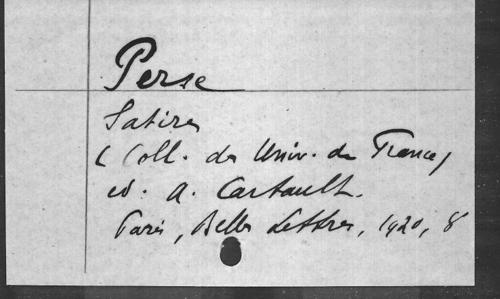 Perse
Satires
(Coll. des Univ. de France)
éd. A. Cartault.
Paris, Belles Lettres, 1920, 8